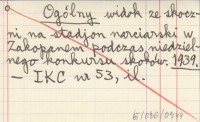 Ogólny widok ze skocz-
ni na stadjon narciarski w
Zakopanem podczas niedziel-
nego konkursu skoków. 1939.
— IKC nr 53, il.